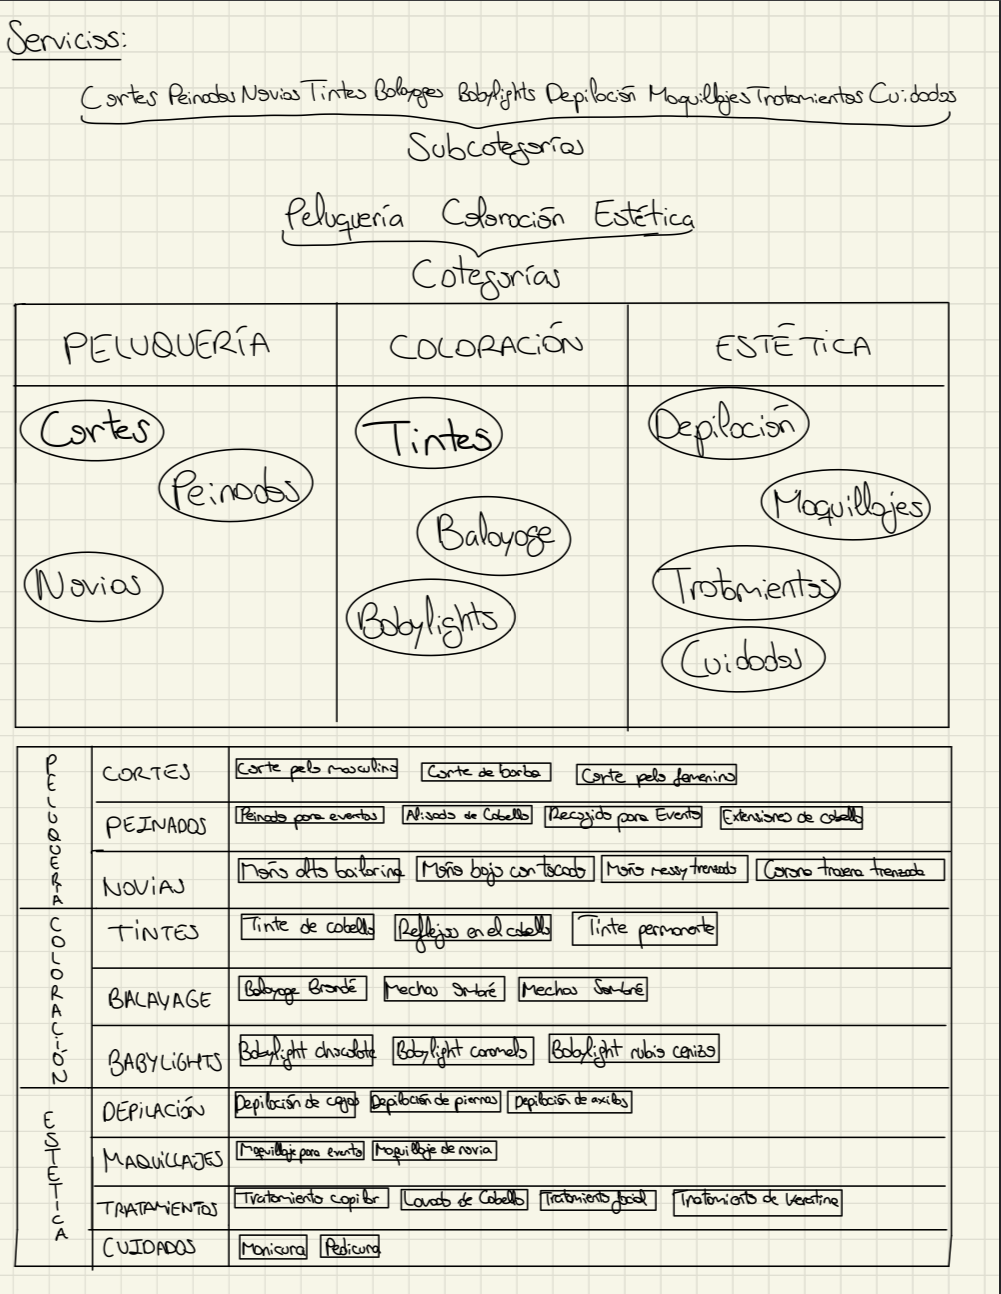 Servicios:
Cortes Peinados Novias Tintes Balayages Babylights Depilación Maquillajes Tratamientos Cuidados
Subcategorías
Peluquería Coloración Estética
Categorías
PELUQUERÍA COLORACIÓN ESTÉTICA
Cortes Tintes Depilación
Peinados Maquillajes
Balayage
Novias Tratamientos
Babylights
Cuidados
PELUQUERÍA
CORTES Corte pelo masculino Corte de barba Corte pelo femenino
PEINADOS Peinado para eventos Alisado de Cabello Recogido para Evento Extensiones de cabello
NOVIAS Moño alto bailarina Moño bajo con tocado Moño messy trenzado Corona trasera trenzada
COLORACIÓN
TINTES Tinte de cabello Reflejos en el cabello Tinte permanente
BALAYAGE Balayage Brondé Mechas Ombré Mechas Sombré
BABYLIGHTS Babylight chocolate Babylight caramelo Babylight rubio cenizo
ESTETICA
DEPILACIÓN Depilación de cejas Depilación de piernas Depilación de axilas
MAQUILLAJES Maquillaje para evento Maquillaje de novia
TRATAMIENTOS Tratamiento capilar Lavado de Cabello Tratamiento facial Tratamiento de Keratina
CUIDADOS Manicura Pedicura